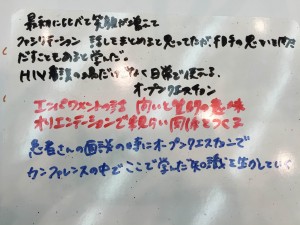 最初に比べて笑顔が増えて
ファシリテーション 話をまとめると思ってたが、相手の思いを聞き
だすこともあると学んだ。
HIV看護の場だけでなく日常で使える。
オープンクエスチョン
エンパワメントの話 問いと質問の意味
オリエンテーションで親しい関係をつくる
患者さんの面談の時にオープンクエスチョンで
カンファレンスの中でここで学んだ知識を生かしていく